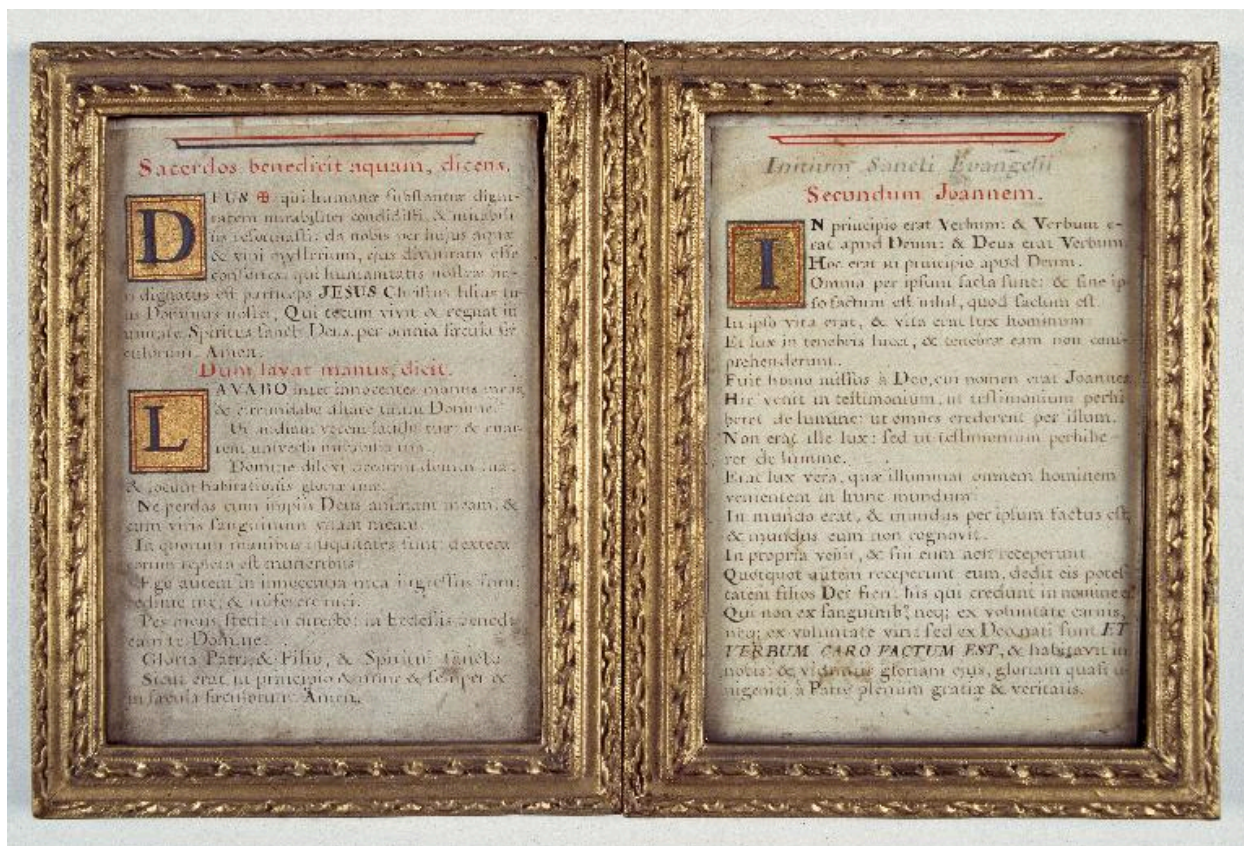 Sacerdos benedicit aquam, dicens.
DEUS ✠ qui humanæ substantiæ digni-
tatem mirabiliter condidisti, & mirabili-
us reformasti: da nobis per hujus aquæ
& vini mysterium, ejus divinitatis esse
consortes, qui humanitatis nostræ fie-
ri dignatus est particeps JESUS Christus filius tu-
us Dominus noster, Qui tecum vivit & regnat in
unitate Spiritus sancti Deus, per omnia sæcula sæ-
culorum. Amen.
Dum lavat manus, dicit.
LAVABO inter innocentes manus meas,
& circumdabo altare tuum Domine.
Ut audiam vocem laudis tuæ: & enar-
rem universa mirabilia tua.
Domine dilexi decorem domus tuæ:
& locum habitationis gloriæ tuæ.
Ne perdas cum impiis Deus animam meam: &
cum viris sanguinum vitam meam.
In quorum manibus iniquitates sunt: dextera
eorum repleta est muneribus.
Ego autem in innocentia mea ingressus sum:
redime me, & miserere mei.
Pes meus stetit in directo: in Ecclesiis benedi-
cam te Domine.
Gloria Patri, & Filio, & Spiritui sancto.
Sicut erat in principio & nunc & semper &
in sæcula sæculorum. Amen.
Initium Sancti Evangelii
Secundum Joannem.
IN principio erat Verbum: & Verbum e-
rat apud Deum: & Deus erat Verbum.
Hoc erat in principio apud Deum.
Omnia per ipsum facta sunt: & sine ip-
so factum est nihil, quod factum est.
In ipso vita erat, & vita erat lux hominum:
Et lux in tenebris lucet, & tenebræ eam non com-
prehenderunt.
Fuit homo missus à Deo, cui nomen erat Joannes
Hic venit in testimonium, ut testimonium perhi
beret de lumine: ut omnes crederent per illum.
Non erat ille lux: sed ut testimonium perhibe-
ret de lumine.
Erat lux vera, quæ illuminat omnem hominem
venientem in hunc mundum:
In mundo erat, & mundus per ipsum factus est,
& mundus eum non cognovit.
In propria venit, & sui eum non receperunt
Quotquot autem receperunt eum, dedit eis potes-
tatem filios Dei fieri: his qui credunt in nomine
Qui non ex sanguinib9 neq; ex voluntate carnis,
neq; ex voluntate viri: sed ex Deo nati sunt. ET
VERBUM CARO FACTUM EST, & habitavit in
nobis: & vidimus gloriam ejus, gloriam quasi u-
nigeniti à Patre plenum gratiæ & veritatis.